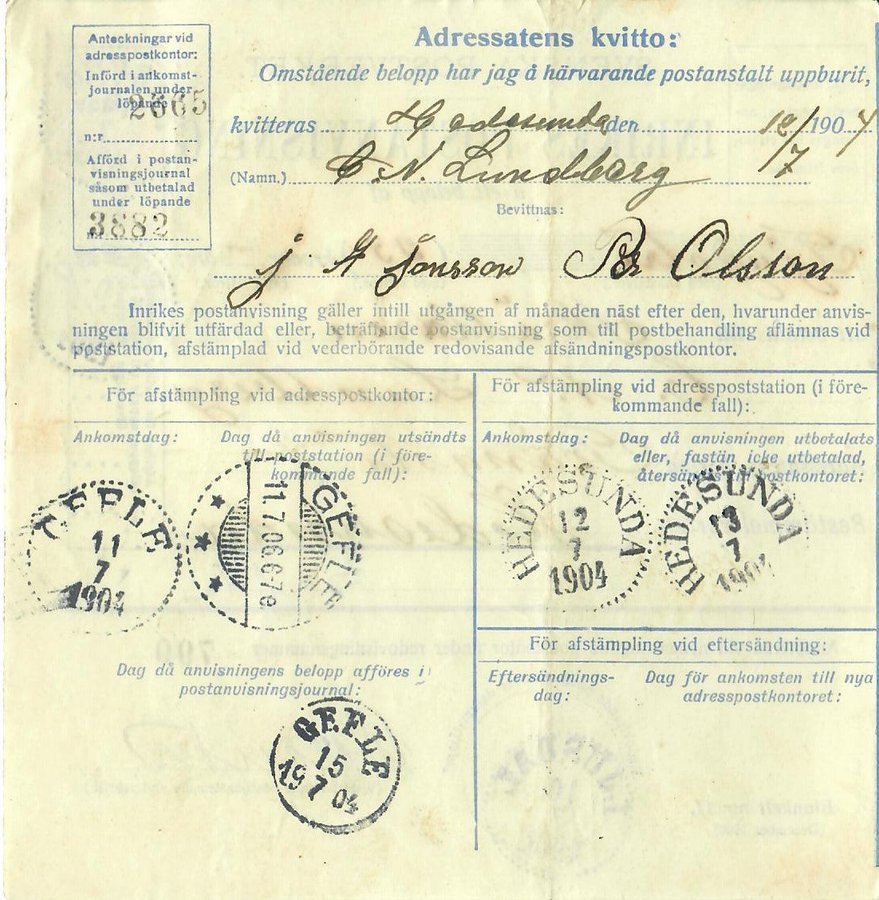 Anteckningar vid
adresspostkontor:
Införd i ankomst-
journalen under
löpande
2665
n:r
Afförd i postan-
visningsjournal
såsom utbetalad
under löpande
3882
Adressatens kvitto:
Omstående belopp har jag å härvarande postanstalt uppburit,
kvitteras Hedesunda den 12/7 1904
(Namn.) C. N. Lundberg
Bevittnas:
J G Jonsson Pr Olsson
Inrikes postanvisning gäller intill utgången af månaden näst efter den, hvarunder anvis-
ningen blifvit utfärdad eller, beträffande postanvisning som till postbehandling aflämnas vid
poststation, afstämplad vid vederbörande redovisande afsändningspostkontor.
För afstämpling vid adresspostkontor:
Ankomstdag:
Dag då anvisningen utsändts
till poststation (i före-
kommande fall):
GEFLE
11
7
1904
GEFLE
11.7.06.67e
Dag då anvisningens belopp afföres i
postanvisningsjournal:
GEFLE
15
19 7 04
För afstämpling vid adresspoststation (i före-
kommande fall):
Ankomstdag:
Dag då anvisningen utbetalats
eller, fastän icke utbetalad,
återsändts till postkontoret:
HEDESUNDA
12
7
1904
HEDESUNDA
13
7
1904
För afstämpling vid eftersändning:
Eftersändnings-
dag:
Dag för ankomsten till nya
adresspostkontoret: